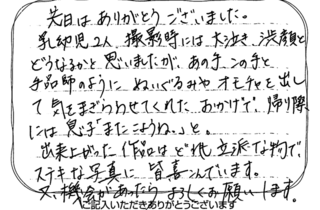 先日はありがとうございました。
乳幼児2人 撮影時には大泣き、渋顔と
どうなるかと思いましたが、あの手この手と
手品師のようにぬいぐるみやオモチャを出し
て気をまぎらわせてくれたおかげで、帰り際
には息子「またこようね。」と。
出来上がった作品はどれも立派な物で、
ステキな写真に皆喜んでいます。
又、機会があったらよろしくお願いします。
ご記入いただきありがとうございます